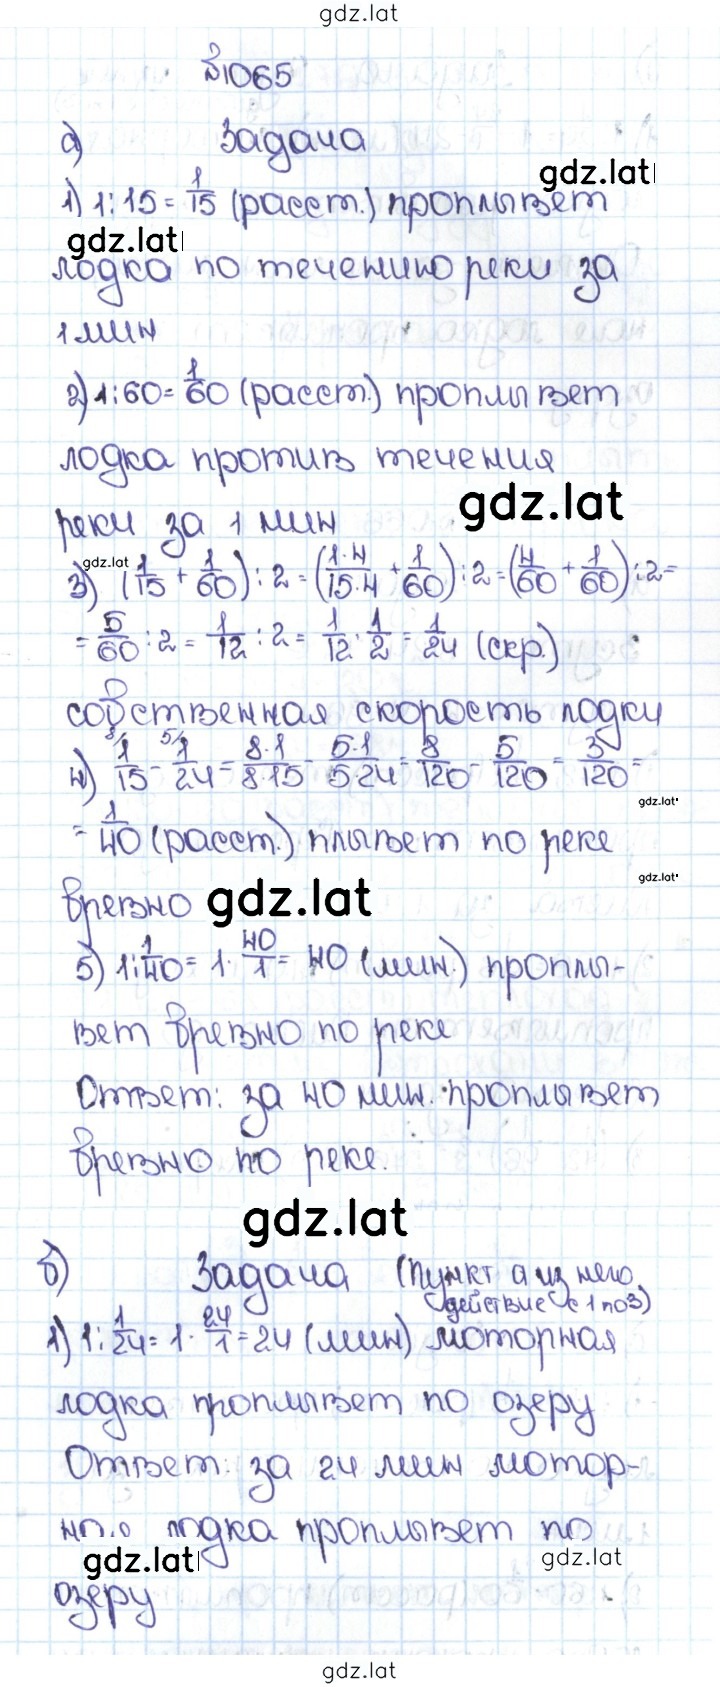 gdz.lat
№1065
а) Задача
gdz.lat
1) 1:15 = 1/15 (расст.) проплывет
gdz.lat
лодка по течению реки за
1 мин
2) 1:60 = 1/60 (расст.) проплывет
лодка против течения
gdz.lat
реки за 1 мин
gdz.lat
3) (1/15 + 1/60) : 2 = (1·4/15·4 + 1/60) : 2 = (4/60 + 1/60) : 2 =
= 5/60 : 2 = 1/12 : 2 = 1/12 · 1/2 = 1/24 (скр.)
собственная скорость лодки
4) 8/ 1/15 - 5/ 1/24 = 8·1/8·15 - 5·1/5·24 = 8/120 - 5/120 = 3/120 =
gdz.lat
= 1/40 (расст.) плывет по реке
gdz.lat
врезно gdz.lat
5) 1 : 1/40 = 1 · 40/1 = 40 (мин.) проплы-
вет врезно по реке
Ответ: за 40 мин. проплывет
врезно по реке.
gdz.lat
б) Задача (пункт а из него
действие с 1 по 3)
1) 1 : 1/24 = 1 · 24/1 = 24 (мин) моторная
лодка проплывет по озеру
Ответ: за 24 мин мотор-
лодка проплывет по
gdz.lat gdz.lat
озеру
gdz.lat